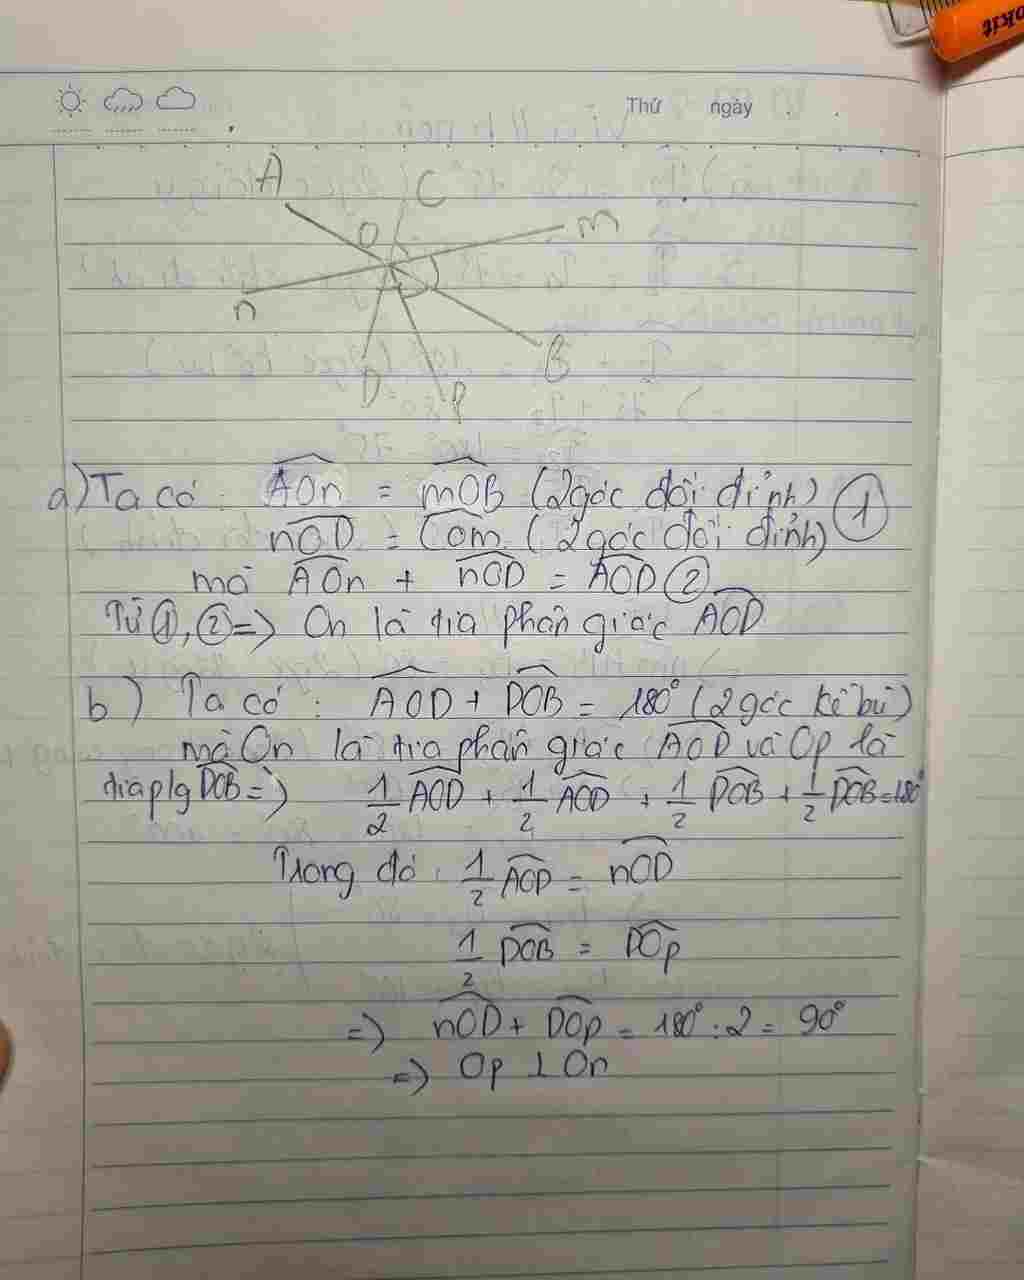 Thứ ngày
A C m
O
n
D P B
a) Ta có: AOn = mOB (2 góc đối đỉnh) 1
nOD = Com (2 góc đối đỉnh)
mà AOn + nOD = AOD 2
Từ 1, 2 => On là tia phân giác AOD
b) Ta có: AOD + DOB = 180° (2 góc kề bù)
mà On là tia phân giác AOD và Op là
tia p/g DOB => 1/2 AOD + 1/2 AOD + 1/2 DOB + 1/2 DOB = 180°
Trong đó: 1/2 AOD = nOD
1/2 DOB = DOp
=> nOD + DOp = 180° : 2 = 90°
=> Op ⊥ On